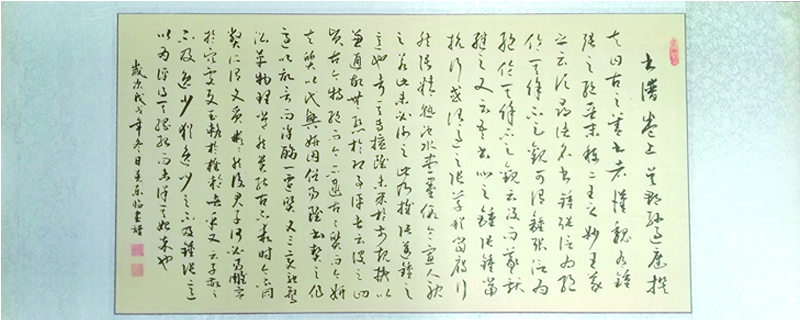 書譜卷上吳郡孫過庭撰
夫自古之善書者漢魏有鍾
張之絕晉末稱二王之妙王羲
之云頃尋諸名書鍾張信為絕
倫其餘不足觀可謂鍾張信為
絕倫其餘不足觀云沒而羲獻
繼之又云吾書比之鍾張鍾當
抗行或謂過之張草猶當雁行
然張精熟池水盡墨假令寡人耽
之若此未必謝之此乃推張邁鍾之
意也考其專擅雖未果於前規摭以
兼通故無慚於即事評者云彼之四
賢古今特絕而今不逮古古質而今妍
夫質以代興妍因俗易雖書契之作
適以記言而淳醨一遷質文三變馳鶩
沿革物理常然貴能古不乖時今不同
弊所謂文質彬彬然後君子何必易雕宮
於穴處反玉輅於椎輪者乎又云子敬之
不及逸少猶逸少之不及鍾張意者
以為評得其綱紀而未詳其始卒也
歲次戊戌年冬日臨書譜